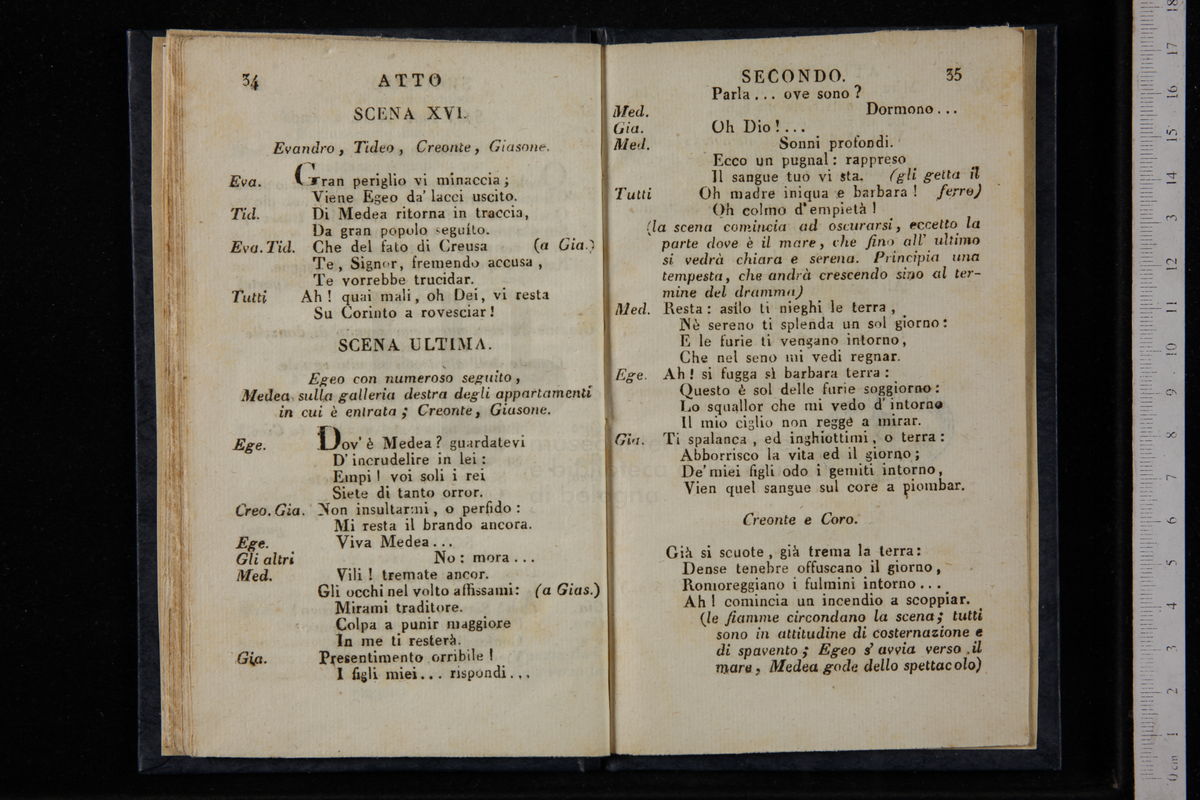 34 ATTO
SCENA XVI.
Evandro, Tideo, Creonte, Giasone.
Eva. Gran periglio vi minaccia;
Viene Egeo da' lacci uscito.
Tid. Di Medea ritorna in traccia,
Da gran popolo seguito.
Eva. Tid. Che del fato di Creusa (a Gia.)
Te, Signor, fremendo accusa,
Te vorrebbe trucidar.
Tutti Ah! quai mali, oh Dei, vi resta
Su Corinto a rovesciar!
SCENA ULTIMA.
Egeo con numeroso seguito,
Medea sulla galleria destra degli appartamenti
in cui è entrata; Creonte, Giasone.
Ege. Dov'è Medea? guardatevi
D'incrudelire in lei:
Empi! voi soli i rei
Siete di tanto orror.
Creo. Gia. Non insultarmi, o perfido:
Mi resta il brando ancora.
Ege. Viva Medea...
Gli altri No: mora...
Med. Vili! tremate ancor.
Gli occhi nel volto affissami: (a Gias.)
Mirami traditore.
Colpa a punir maggiore
In me ti resterà.
Gia. Presentimento orribile!
I figli miei... rispondi...
SECONDO. 35
Parla... ove sono?
Med. Dormono...
Gia. Oh Dio!...
Med. Sonni profondi.
Ecco un pugnal: rappreso
Il sangue tuo vi sta. (gli getta il
Tutti Oh madre iniqua e barbara! ferro)
Oh colmo d'empietà!
(la scena comincia ad oscurarsi, eccetto la
parte dove è il mare, che fino all' ultimo
si vedrà chiara e serena. Principia una
tempesta, che andrà crescendo sino al ter-
mine del dramma)
Med. Resta: asilo ti nieghi le terra,
Nè sereno ti splenda un sol giorno:
E le furie ti vengano intorno,
Che nel seno mi vedi regnar.
Ege. Ah! si fugga sì barbara terra:
Questo è sol delle furie soggiorno:
Lo squallor che mi vedo d'intorno
Il mio ciglio non regge a mirar.
Gia. Ti spalanca, ed inghiottimi, o terra:
Abborrisco la vita ed il giorno;
De' miei figli odo i gemiti intorno,
Vien quel sangue sul core a piombar.
Creonte e Coro.
Già si scuote, già trema la terra:
Dense tenebre offuscano il giorno,
Romoreggiano i fulmini intorno...
Ah! comincia un incendio a scoppiar.
(le fiamme circondano la scena; tutti
sono in attitudine di costernazione e
di spavento; Egeo s'avvia verso il
mare, Medea gode dello spettacolo)